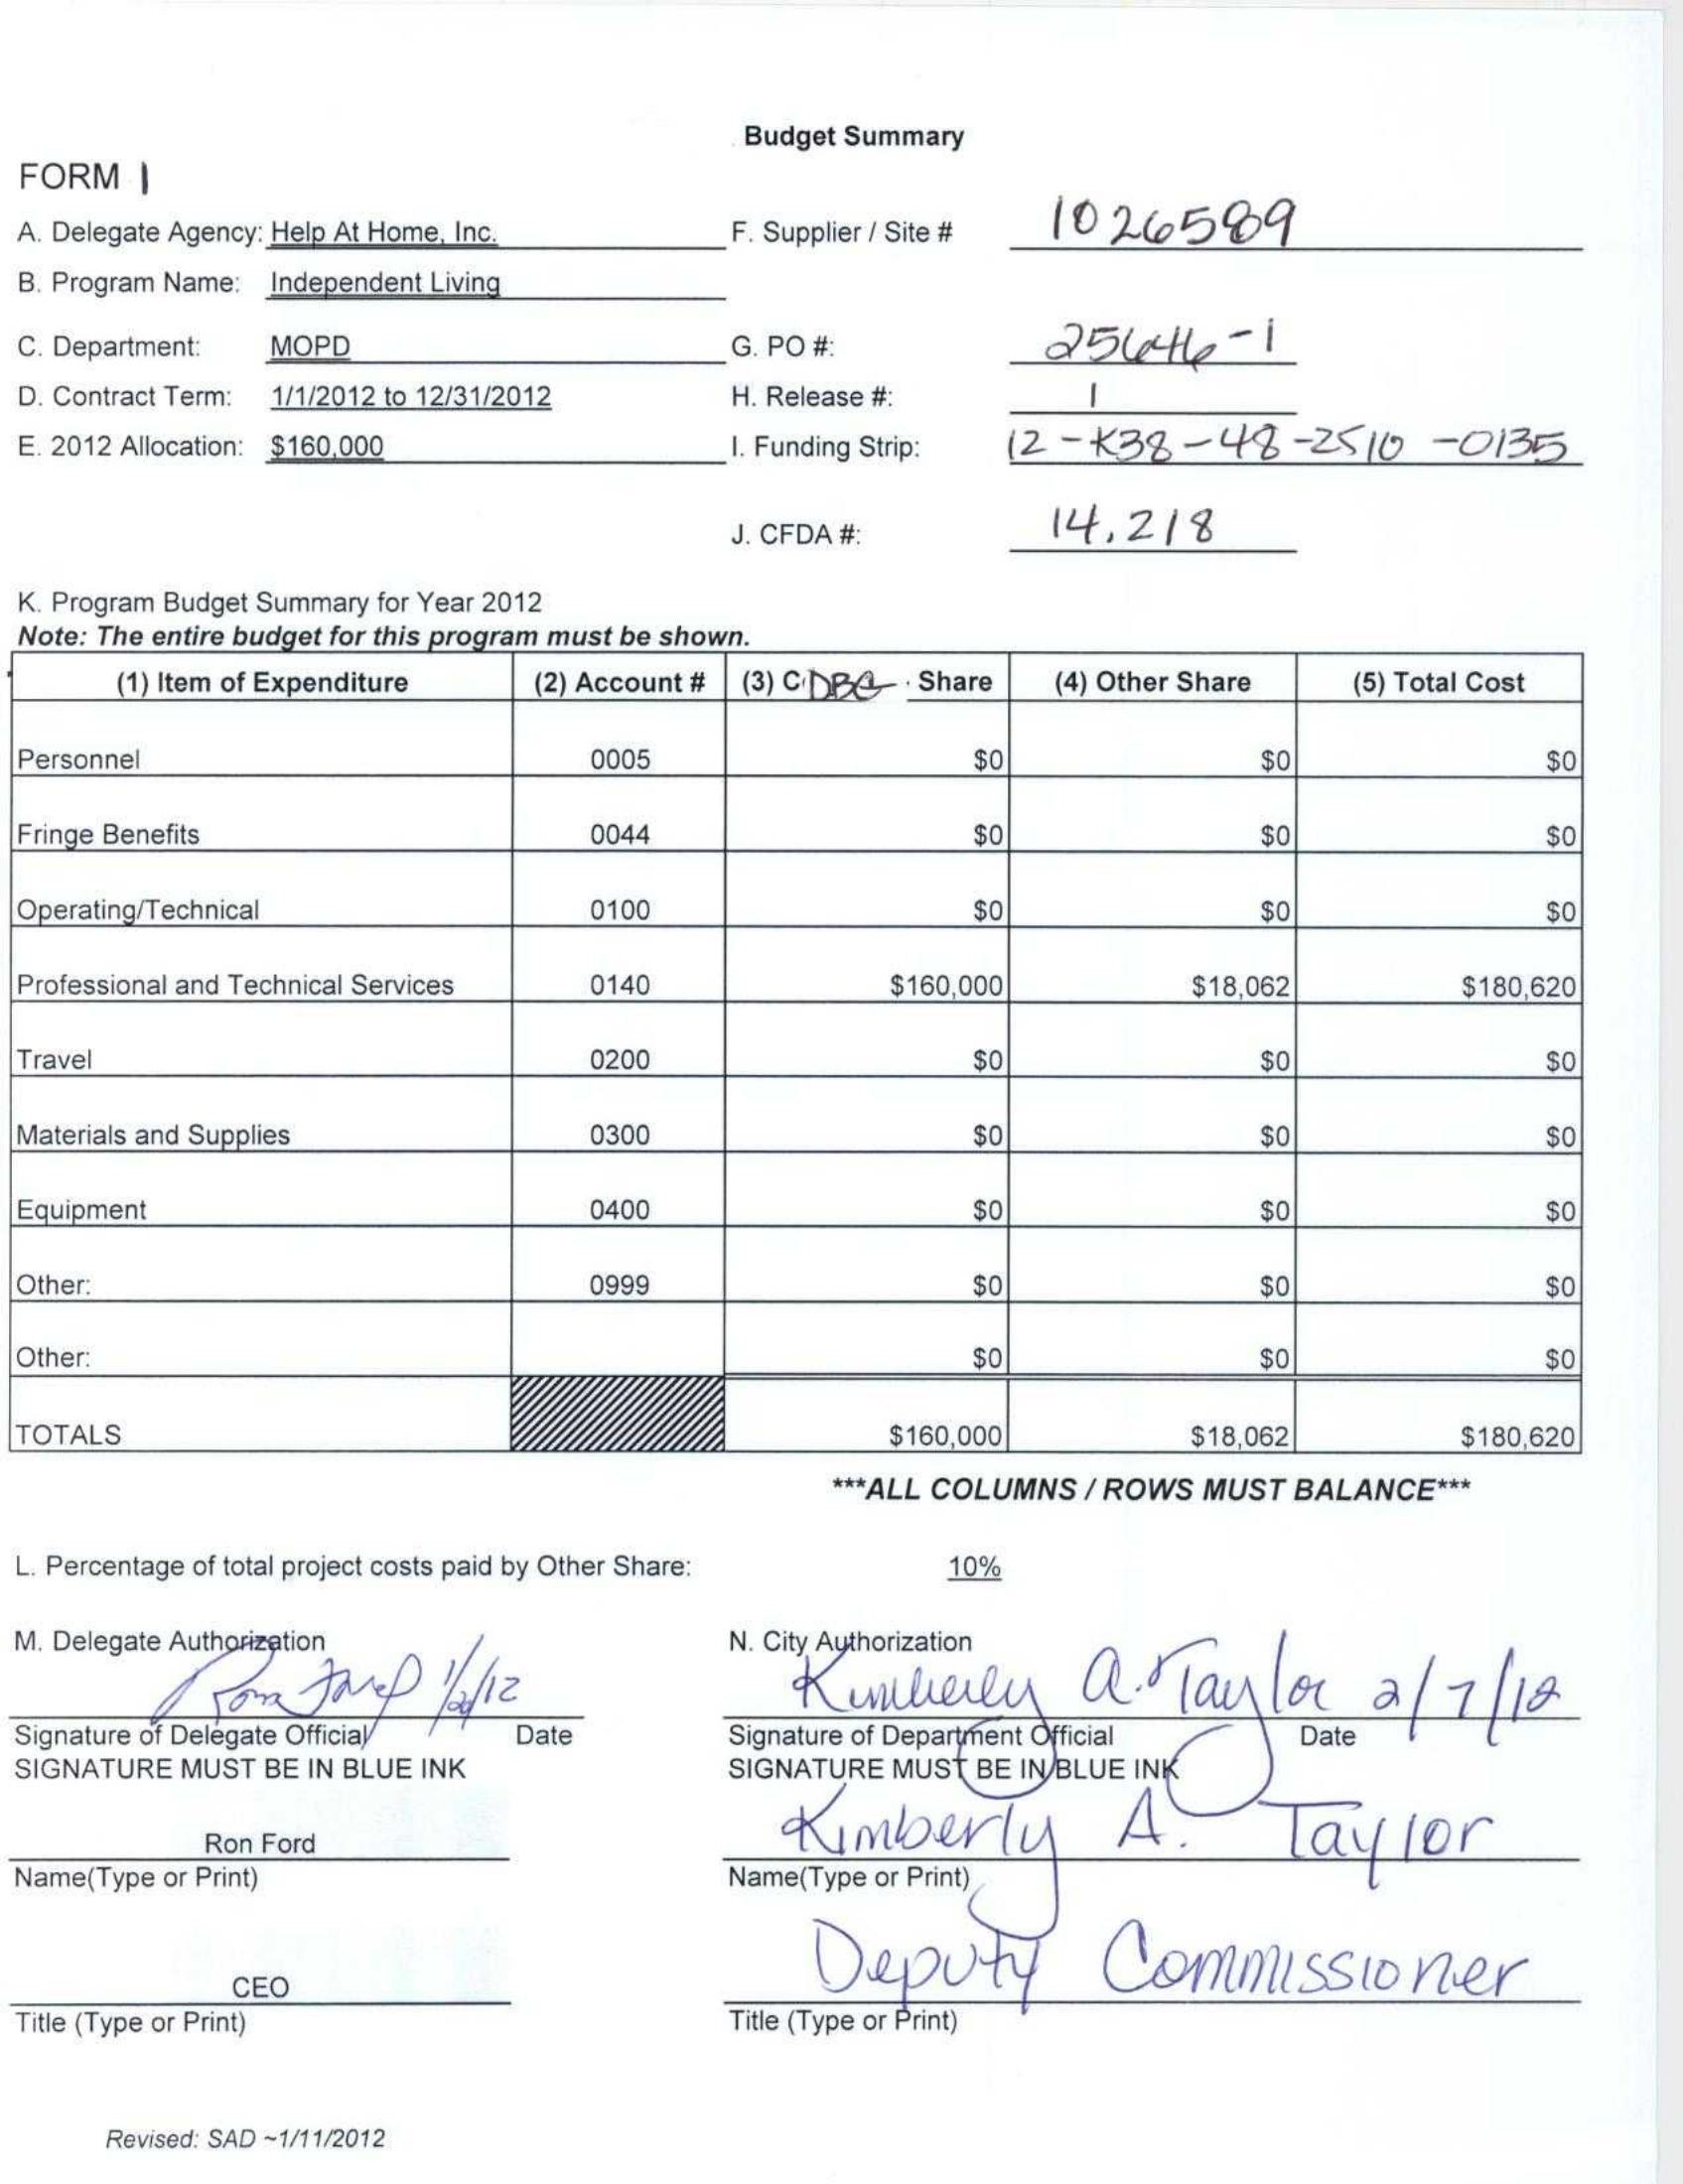 Budget Summary
FORM 1
A. Delegate Agency: Help At Home, Inc. F. Supplier / Site # 1026589
B. Program Name: Independent Living
C. Department: MOPD G. PO #: 25646-1
D. Contract Term: 1/1/2012 to 12/31/2012 H. Release #: 1
E. 2012 Allocation: $160,000 I. Funding Strip: 12-K38-48-2510-0135
J. CFDA #: 14.218
K. Program Budget Summary for Year 2012
Note: The entire budget for this program must be shown.
(1) Item of Expenditure (2) Account # (3) CDBG Share (4) Other Share (5) Total Cost
Personnel 0005 $0 $0 $0
Fringe Benefits 0044 $0 $0 $0
Operating/Technical 0100 $0 $0 $0
Professional and Technical Services 0140 $160,000 $18,062 $180,620
Travel 0200 $0 $0 $0
Materials and Supplies 0300 $0 $0 $0
Equipment 0400 $0 $0 $0
Other: 0999 $0 $0 $0
Other: $0 $0 $0
TOTALS $160,000 $18,062 $180,620
***ALL COLUMNS / ROWS MUST BALANCE***
L. Percentage of total project costs paid by Other Share: 10%
M. Delegate Authorization N. City Authorization
Ron Ford Kimberly A. Taylor 2/7/12
Signature of Delegate Official Date Signature of Department Official Date
SIGNATURE MUST BE IN BLUE INK SIGNATURE MUST BE IN BLUE INK
Ron Ford Kimberly A. Taylor
Name(Type or Print) Name(Type or Print)
CEO Deputy Commissioner
Title (Type or Print) Title (Type or Print)
Revised: SAD ~1/11/2012